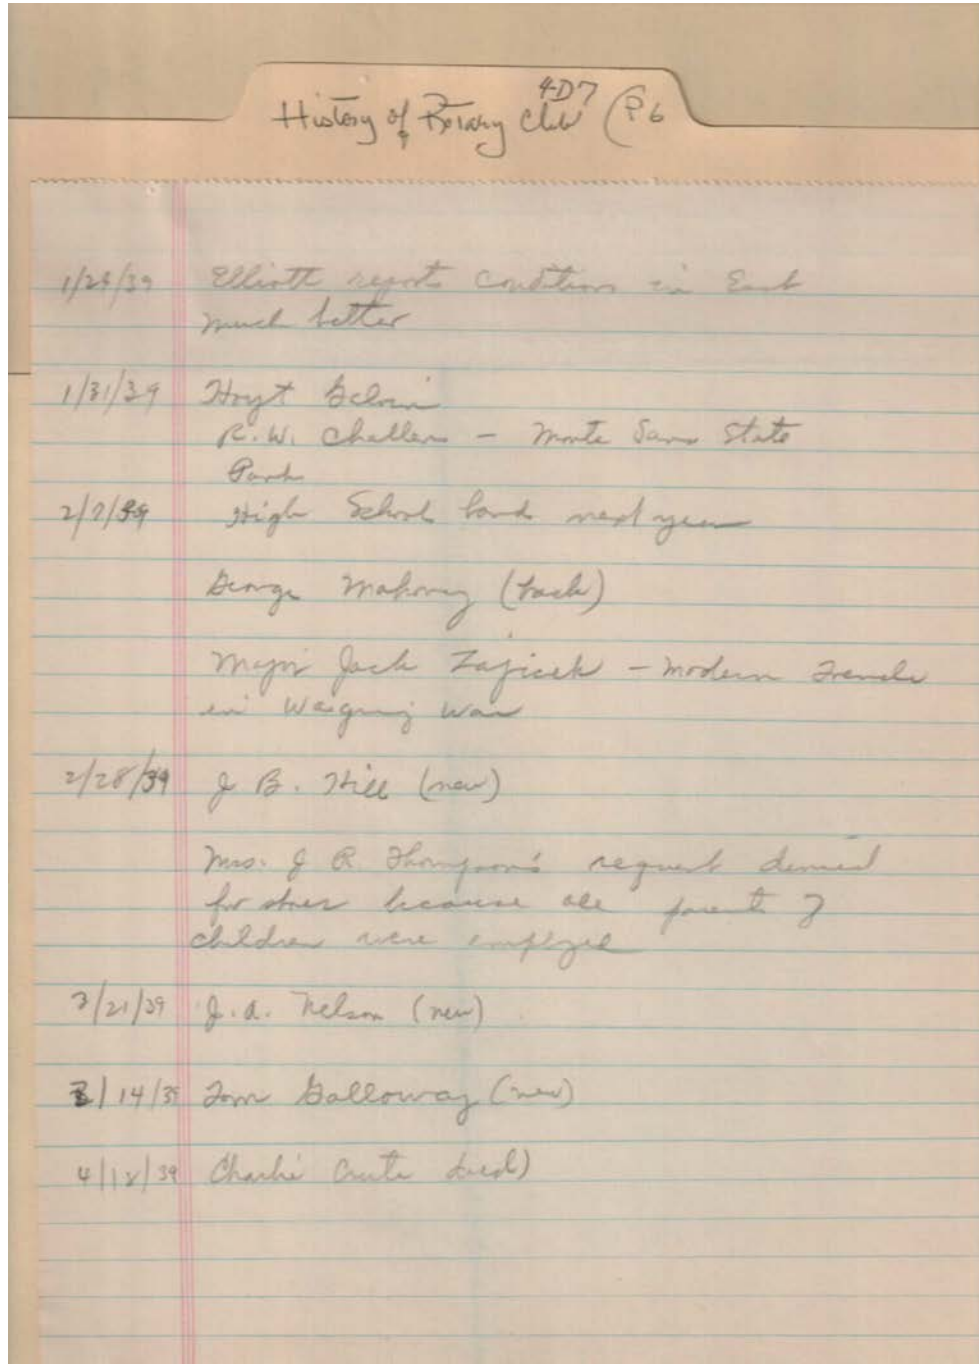 4-D7
History of Rotary Club (P6
1/24/39 Elliott reports conditions in East
much better
1/31/39 Hoyt Galvin
R.W. Challers - Monte Sano State
Park
2/7/39 High School band next year
George Mahoney (back)
Major Jack Zajicek - Modern Trends
in Waging War
2/28/39 J B. Hill (new)
Mrs. J R Thompson's request denied
for shoes because all parents of
children were employee
3/21/39 J. A. Nelson (new)
3/14/39 Tom Galloway (new)
4/18/39 Charlie Crute died)